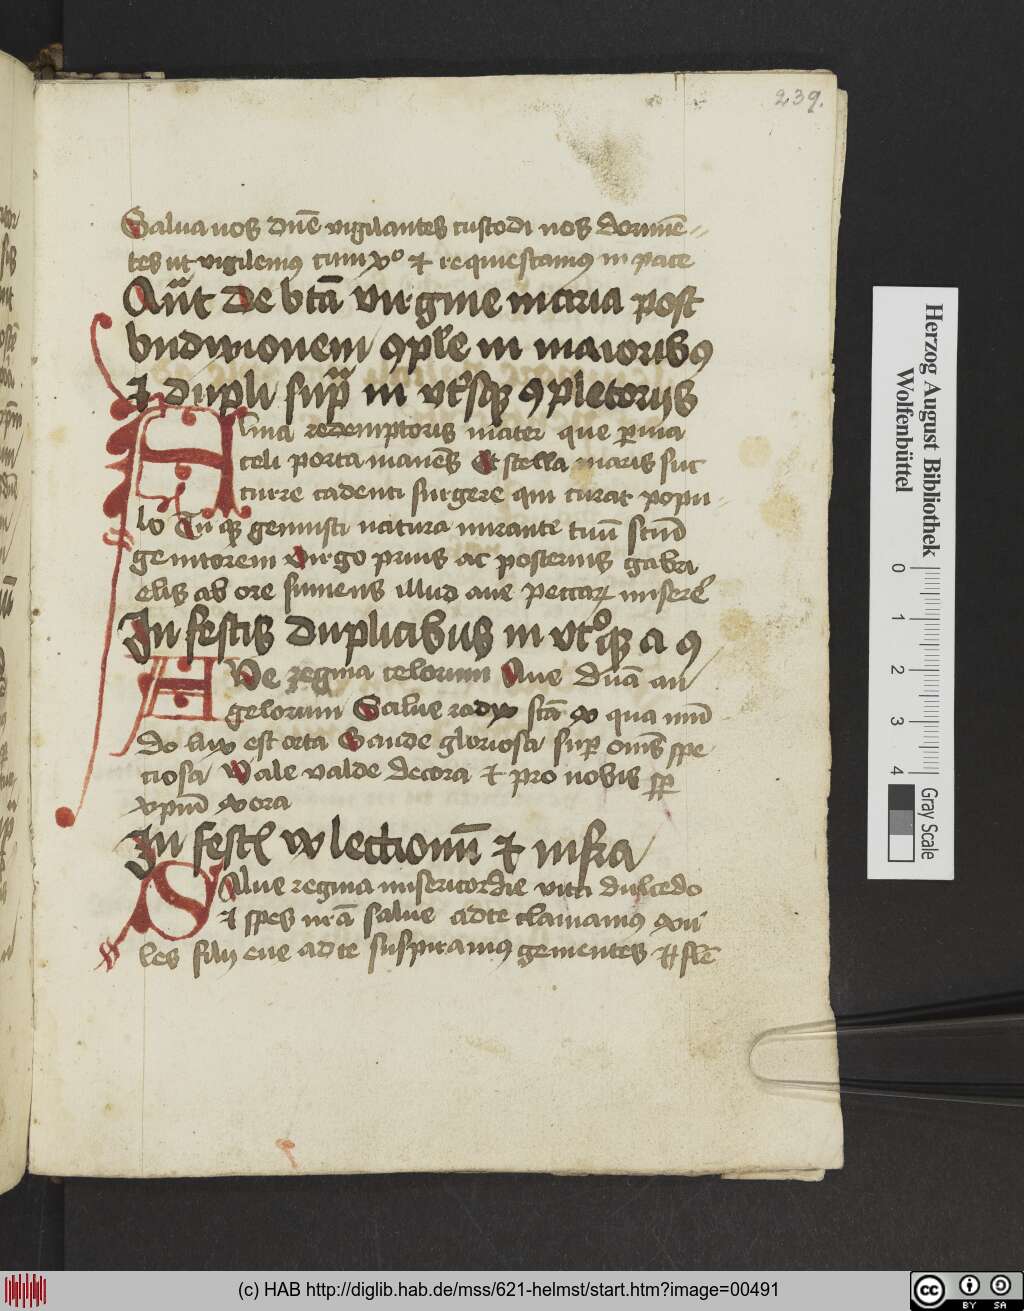 239.
Salua nos dn̄e vigilantes custodi nos dormiē-
tes ut vigilemus cum xpo et requiescamus in pace
Añt de btā virgine maria post
ꝯple in maioribꝯ
et dupli suꝑ in ꝯpletorijs
Alma redemptoris mater que ꝑuia
celi porta manens Et stella maris suc
curre cadenti surgere qui curat popu-
lo Tu que genuisti natura mirante tuū scm̄
genitorem virgo prius ac posterius gabri
elis ab ore sumens illud aue peccaꝝ misere
In festis duplicibus in a ꝯ
AVe regina celorum Aue dn̄a an
gelorum Salue radix scā ex qua mūd
do lux est orta Gaude gloriosa suꝑ omēs spe
ciosa Vale valde decora et pro nobis
xpm̄ exora
In fest lectionū et infra
SAlue regina misericordie vita dulcedo
et spes nr̄a salue ad te clamamus exu
les filij eue ad te suspiramus gementes et flē
Herzog August Bibliothek
Wolfenbüttel
0 1 2 3 4
Gray Scale
(c) HAB http://diglib.hab.de/mss/621-helmst/start.htm?image=00491
cc BY SA